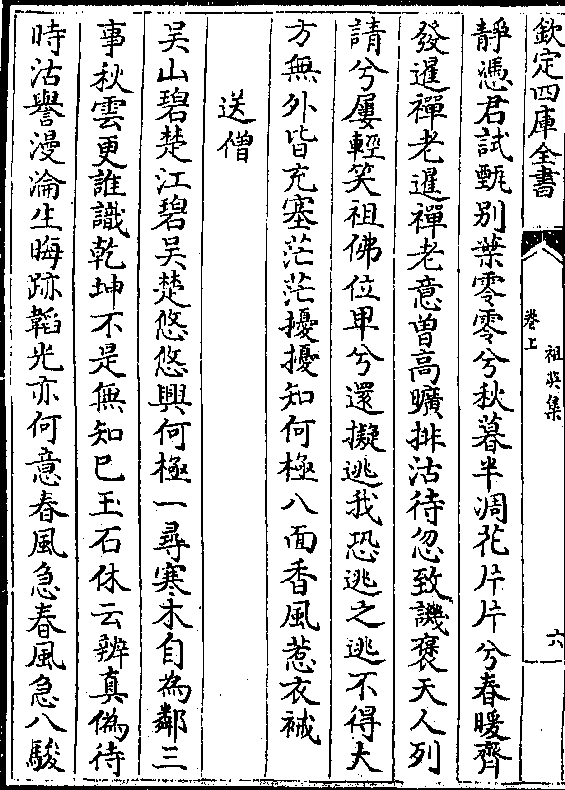 欽定四庫全書
祖英集
卷上
六
靜憑君試甄别葉零零兮秋暮半凋花片片兮春暖齊
發暹禪老暹禪老意曽高曠排沽待忽致譏褒天人列
請兮屢輕笑祖佛位卑兮還擬逃我恐逃之逃不得大
方無外皆充塞茫茫擾擾知何極八面香風惹衣裓
送僧
吴山碧楚江碧吴楚悠悠興何極一尋寒木自為鄰三
事秋雲更誰識乾坤不是無知已玉石休云辨真偽待
時沽譽漫淪生晦跡韜光亦何意春風急春風急八駿